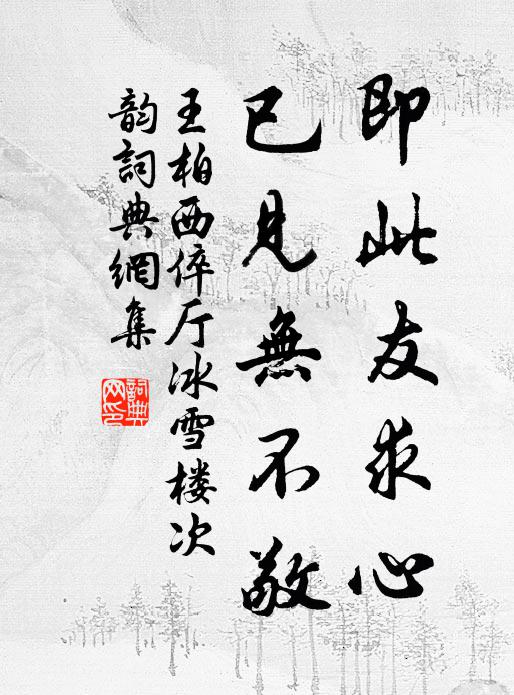 即此友求心
已見無不敬
王柏西倅厅冰雪楼次
韵詞典網集
詞典
网印